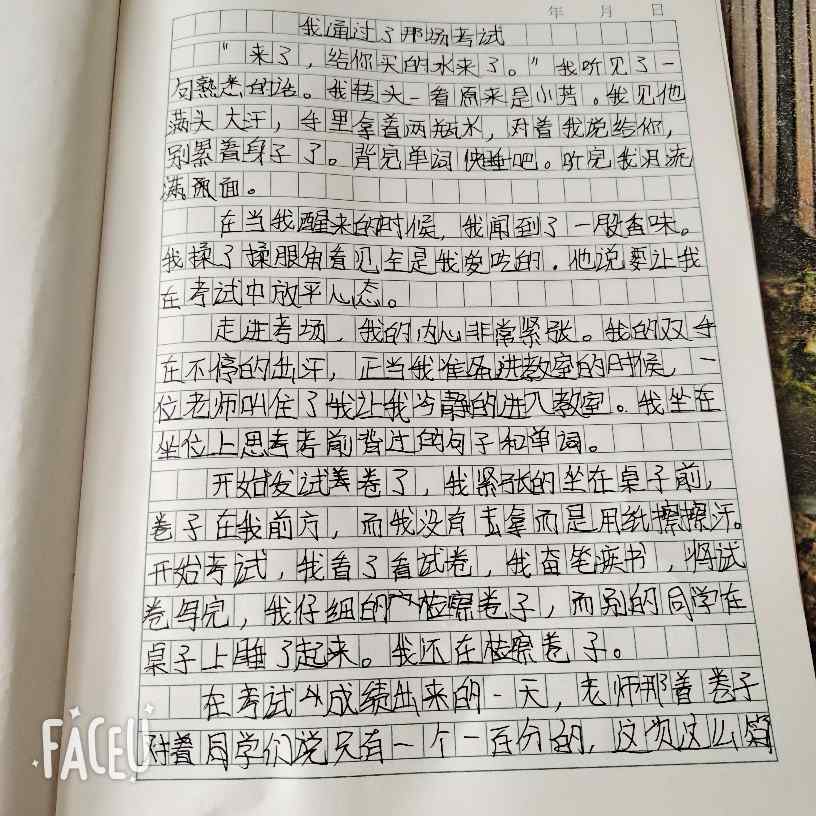 年 月 日
我通过了那场考试
“来了，给你买的水来了。”我听见了一
句熟悉的话。我转头一看原来是小芳。我见他
满头大汗，手里拿着两瓶水，对着我说给你，
别累着身子了。背完单词快睡吧。听完我泪流
满面。
在当我醒来的时候，我闻到了一股香味。
我揉了揉眼角看见全是我爱吃的．他说要让我
在考试中放平心态。
走进考场，我的内心非常紧张。我的双手
在不停的出汗，正当我准备进教室的时候，一
位老师叫住了我让我冷静的进入教室。我坐在
坐位上思考考前背过的句子和单词。
开始发试卷了，我紧张的坐在桌子前，
卷子在我前方，而我没有去拿而是用纸擦擦汗。
开始考试，我看了看试卷，我奋笔疾书，将试
卷写完，我仔细的检察卷子，而别的同学在
桌子上睡了起来。我还在检察卷子。
在考试成绩出来的一天，老师那着卷子
对着同学们说只有一个一百分的，这次这么简
FACEU